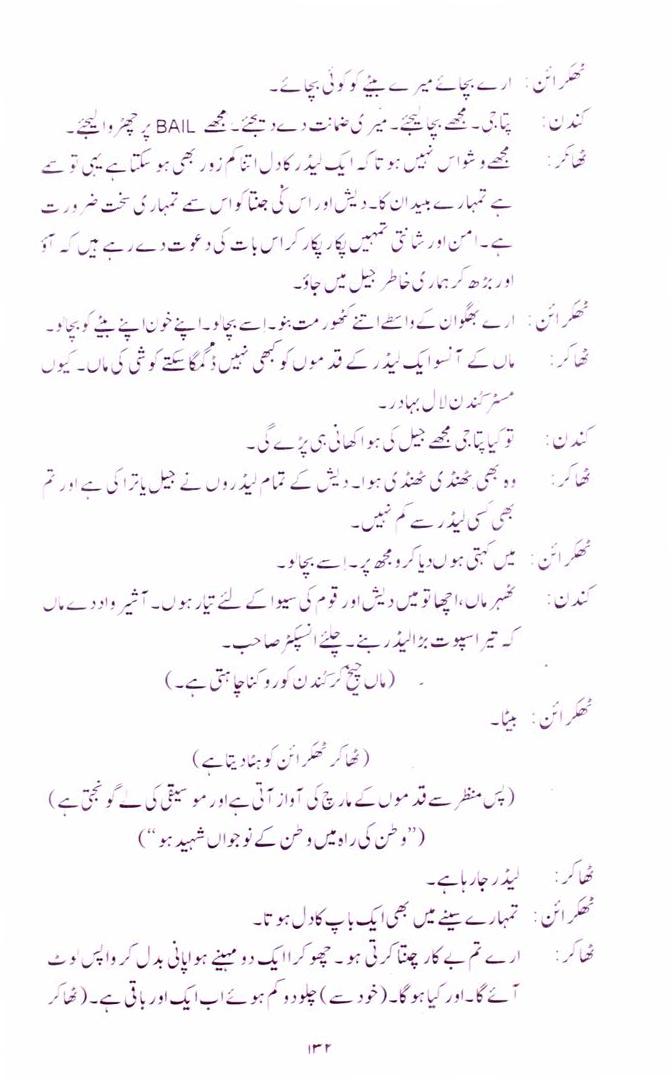 ٹھکرائن: ارے بچائے میرے بیٹے کو کوئی بچائے۔
کندن: پتا جی۔ مجھے بچا لیجئے۔ میری ضمانت دے دیجئے۔ مجھے BAIL پر چھڑوا لیجئے۔
ٹھاکر: مجھے وشواس نہیں ہوتا کہ ایک لیڈر کا دل اتنا کم زور بھی ہو سکتا ہے یہی تو سمے
ہے تمہارے بلیدان کا۔ دیش اور اس کی جنتا کو اس سمے تمہاری سخت ضرورت
ہے۔ امن اور شانتی تمہیں پکار پکار کر اس بات کی دعوت دے رہے ہیں کہ آؤ
اور بڑھ کر ہماری خاطر جیل میں جاؤ۔
ٹھکرائن: ارے بھگوان کے واسطے اتنے کٹھور مت بنو۔ اِسے بچالو۔ اپنے خون اپنے بیٹے کو بچالو۔
ٹھاکر: ماں کے آنسو ایک لیڈر کے قدموں کو کبھی نہیں ڈگمگا سکتے کوشی کی ماں۔ کیوں
مسٹر کُندن لال بہادر۔
کندن: تو کیا پتا جی مجھے جیل کی ہوا کھانی ہی پڑے گی۔
ٹھاکر: وہ بھی ٹھنڈی ٹھنڈی ہوا۔ دیش کے تمام لیڈروں نے جیل یاترا کی ہے اور تم
بھی کسی لیڈر سے کم نہیں۔
ٹھکرائن: میں کہتی ہوں دیا کرو مجھ پر۔ اِسے بچالو۔
کندن: ٹھہر ماں، اچھا تو میں دیش اور قوم کی سیوا کے لئے تیار ہوں۔ آشیر واد دے ماں
کہ تیرا سپوت بڑا لیڈر بنے۔ چلئے انسپکٹر صاحب۔
(ماں چیخ کر کُندن کو روکنا چاہتی ہے۔)
ٹھکرائن: بیٹا۔
(ٹھاکر ٹھکرائن کو ہٹا دیتا ہے)
(پس منظر سے قدموں کے مارچ کی آواز آتی ہے اور موسیقی کی لے گونجتی ہے)
(”وطن کی راہ میں وطن کے نوجواں شہید ہو“)
ٹھاکر: لیڈر جا رہا ہے۔
ٹھکرائن: تمہارے سینے میں بھی ایک باپ کا دل ہوتا۔
ٹھاکر: ارے تم بے کار چنتا کرتی ہو۔ چھوکرا ایک دو مہینے ہوا پانی بدل کر واپس لوٹ
آئے گا۔ اور کیا ہو گا۔ (خود سے) چلو دو کم ہوئے اب ایک اور باقی ہے۔ (ٹھاکر
۱۳۲